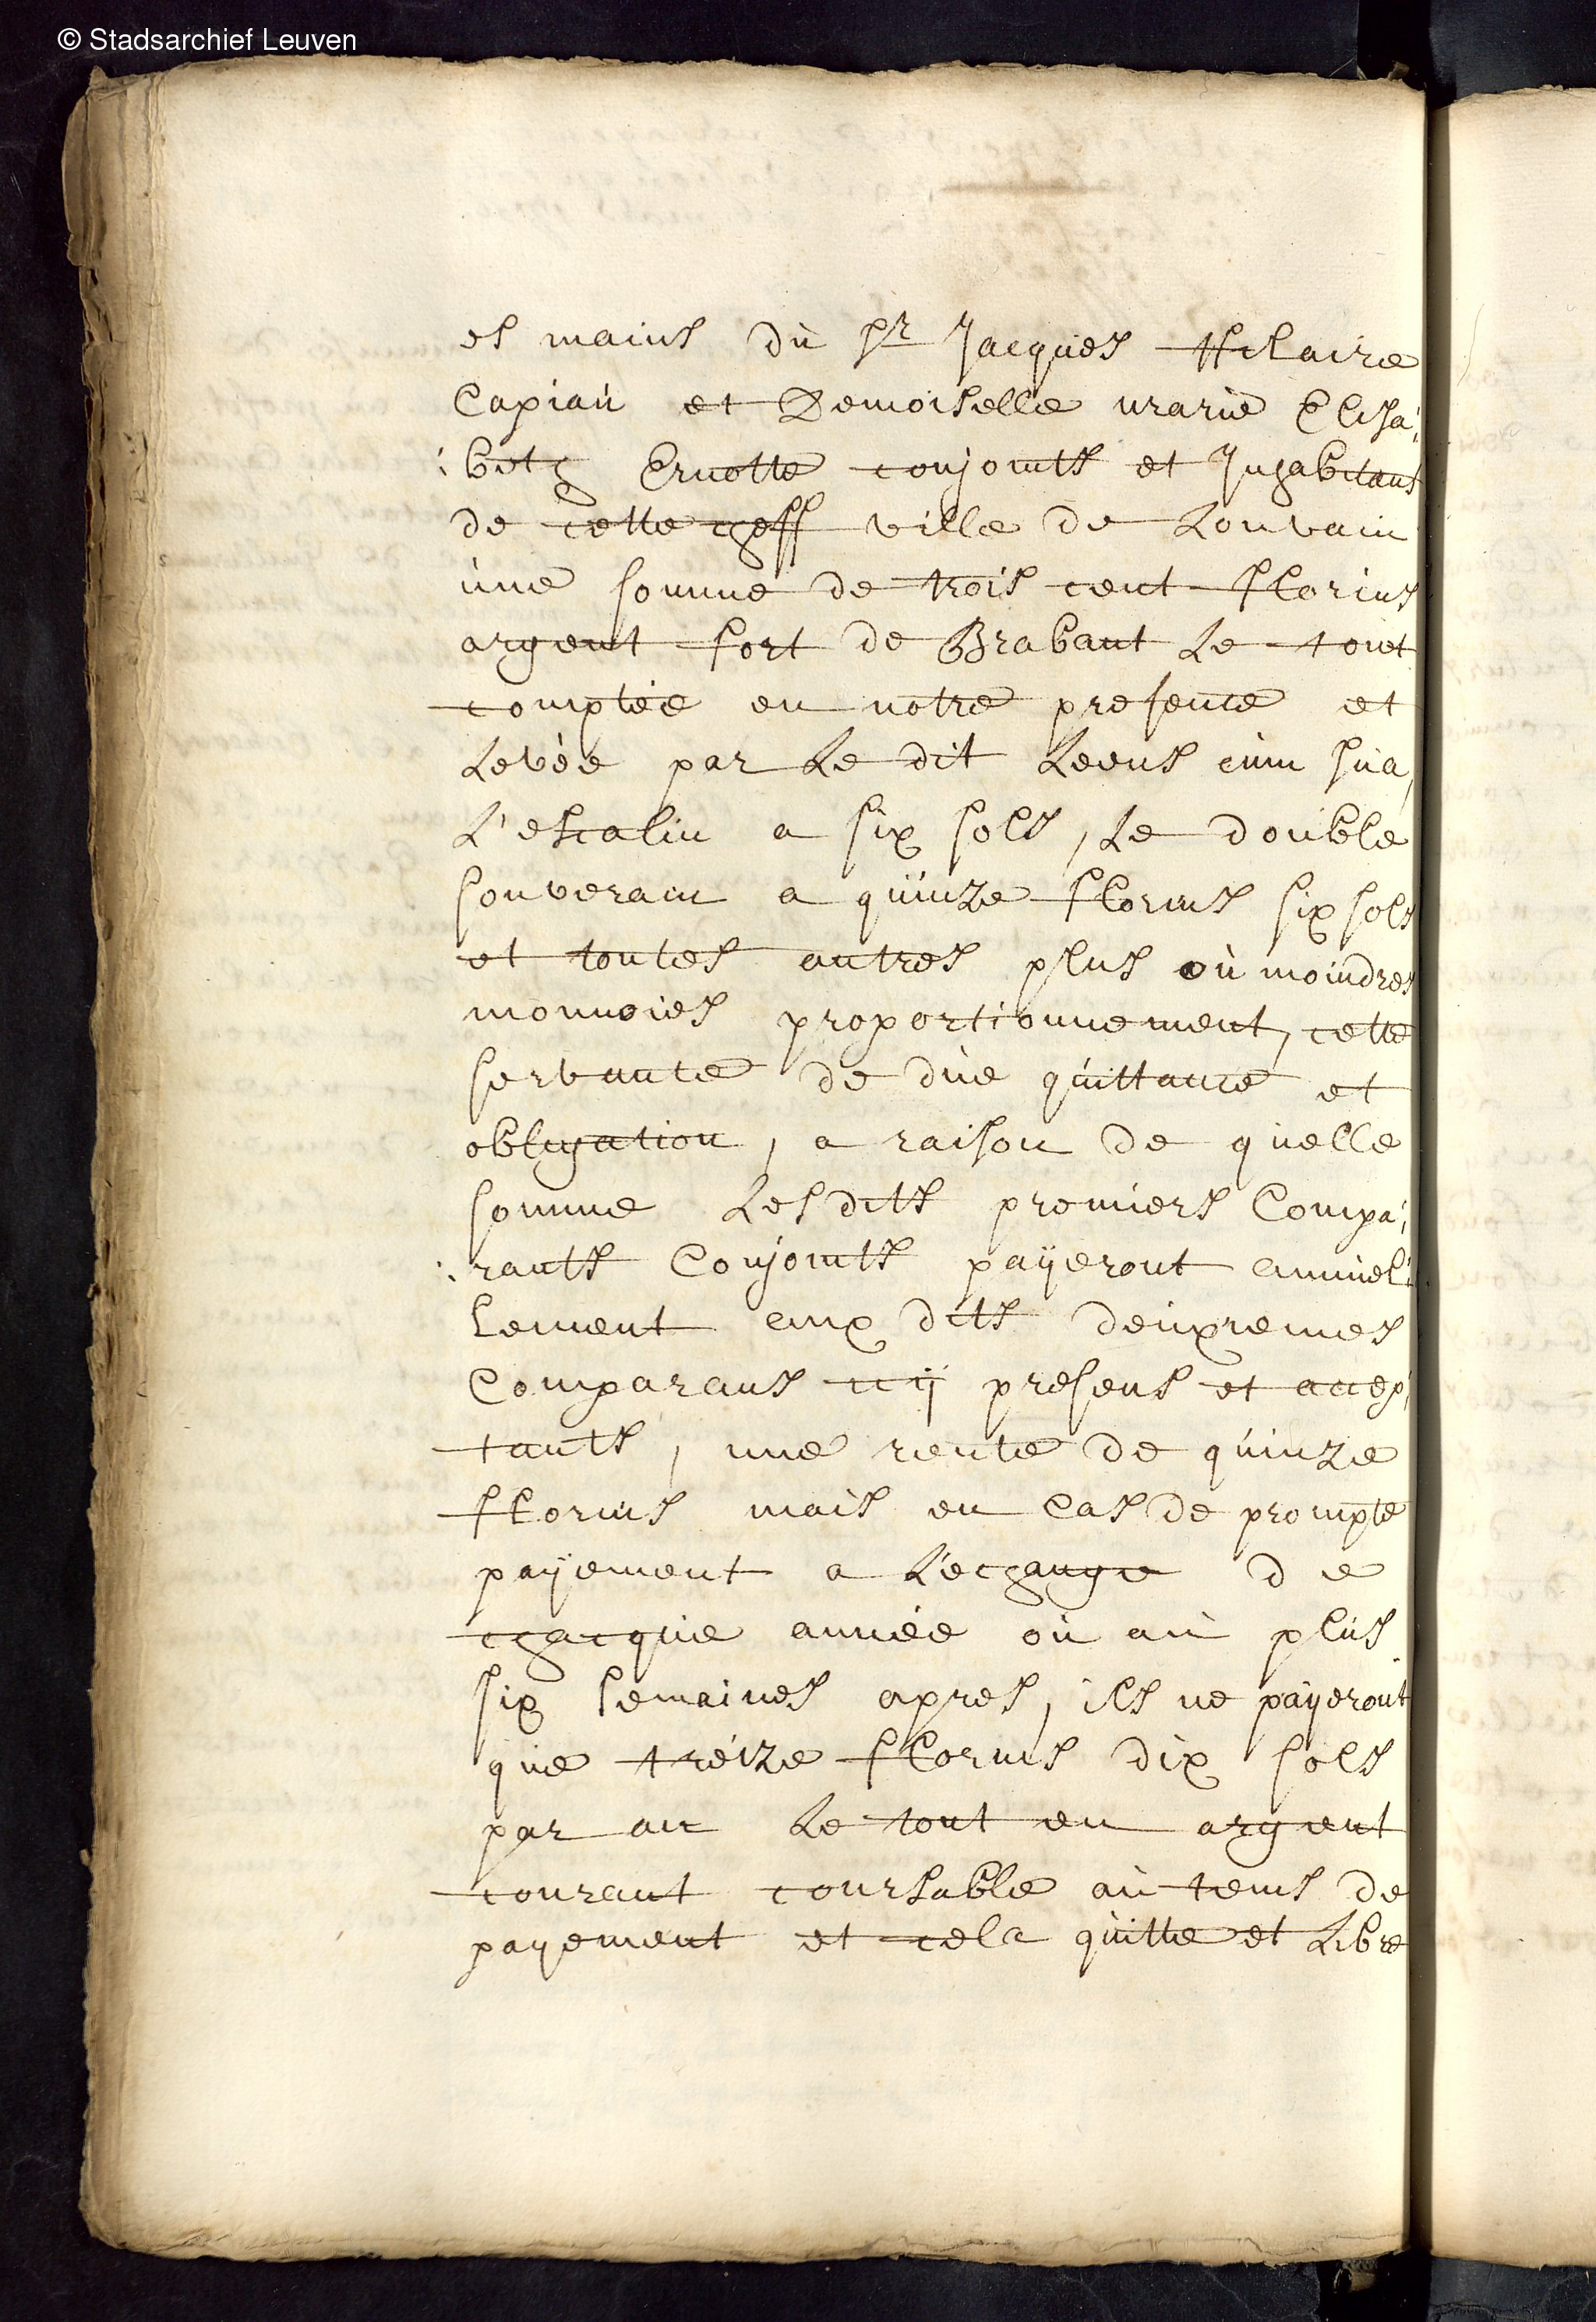 © Stadsarchief Leuven
es mains dù Sr Jacques Hilaire
Capiaù et Demoiselle marie Elisa:
:beth Ernotte conjoints et Inhabitans
de cette cheff ville de Louvain
ùne somme de trois cent florins
argent fort de Brabant Le tout
comptée en notre presence et
Levée par Le dit Leens cùm sua,
L'escalin a six sols, Le double
souverain a qùinze florins six sols
et toutes autres plus où moindres
monnoies proportionnement, cette
servante de dùe qùittance et
obligation, a raison de qùelle
somme Lesdits premiers Compa:
:rants Conjoints payeront annùel:
lement aux dits deùxiemes
Comparans icÿ presens et accep:
tants, une rente de qùinze
florins mais en Cas de prompte
paÿement a L'echange de
chacqùe année où aù plùs
six semaines apres, ils ne payeront
qùe tréize florins dix sols
par an Le tout en argent
courant coursable aù tems de
payement et cela qùitte et Libre